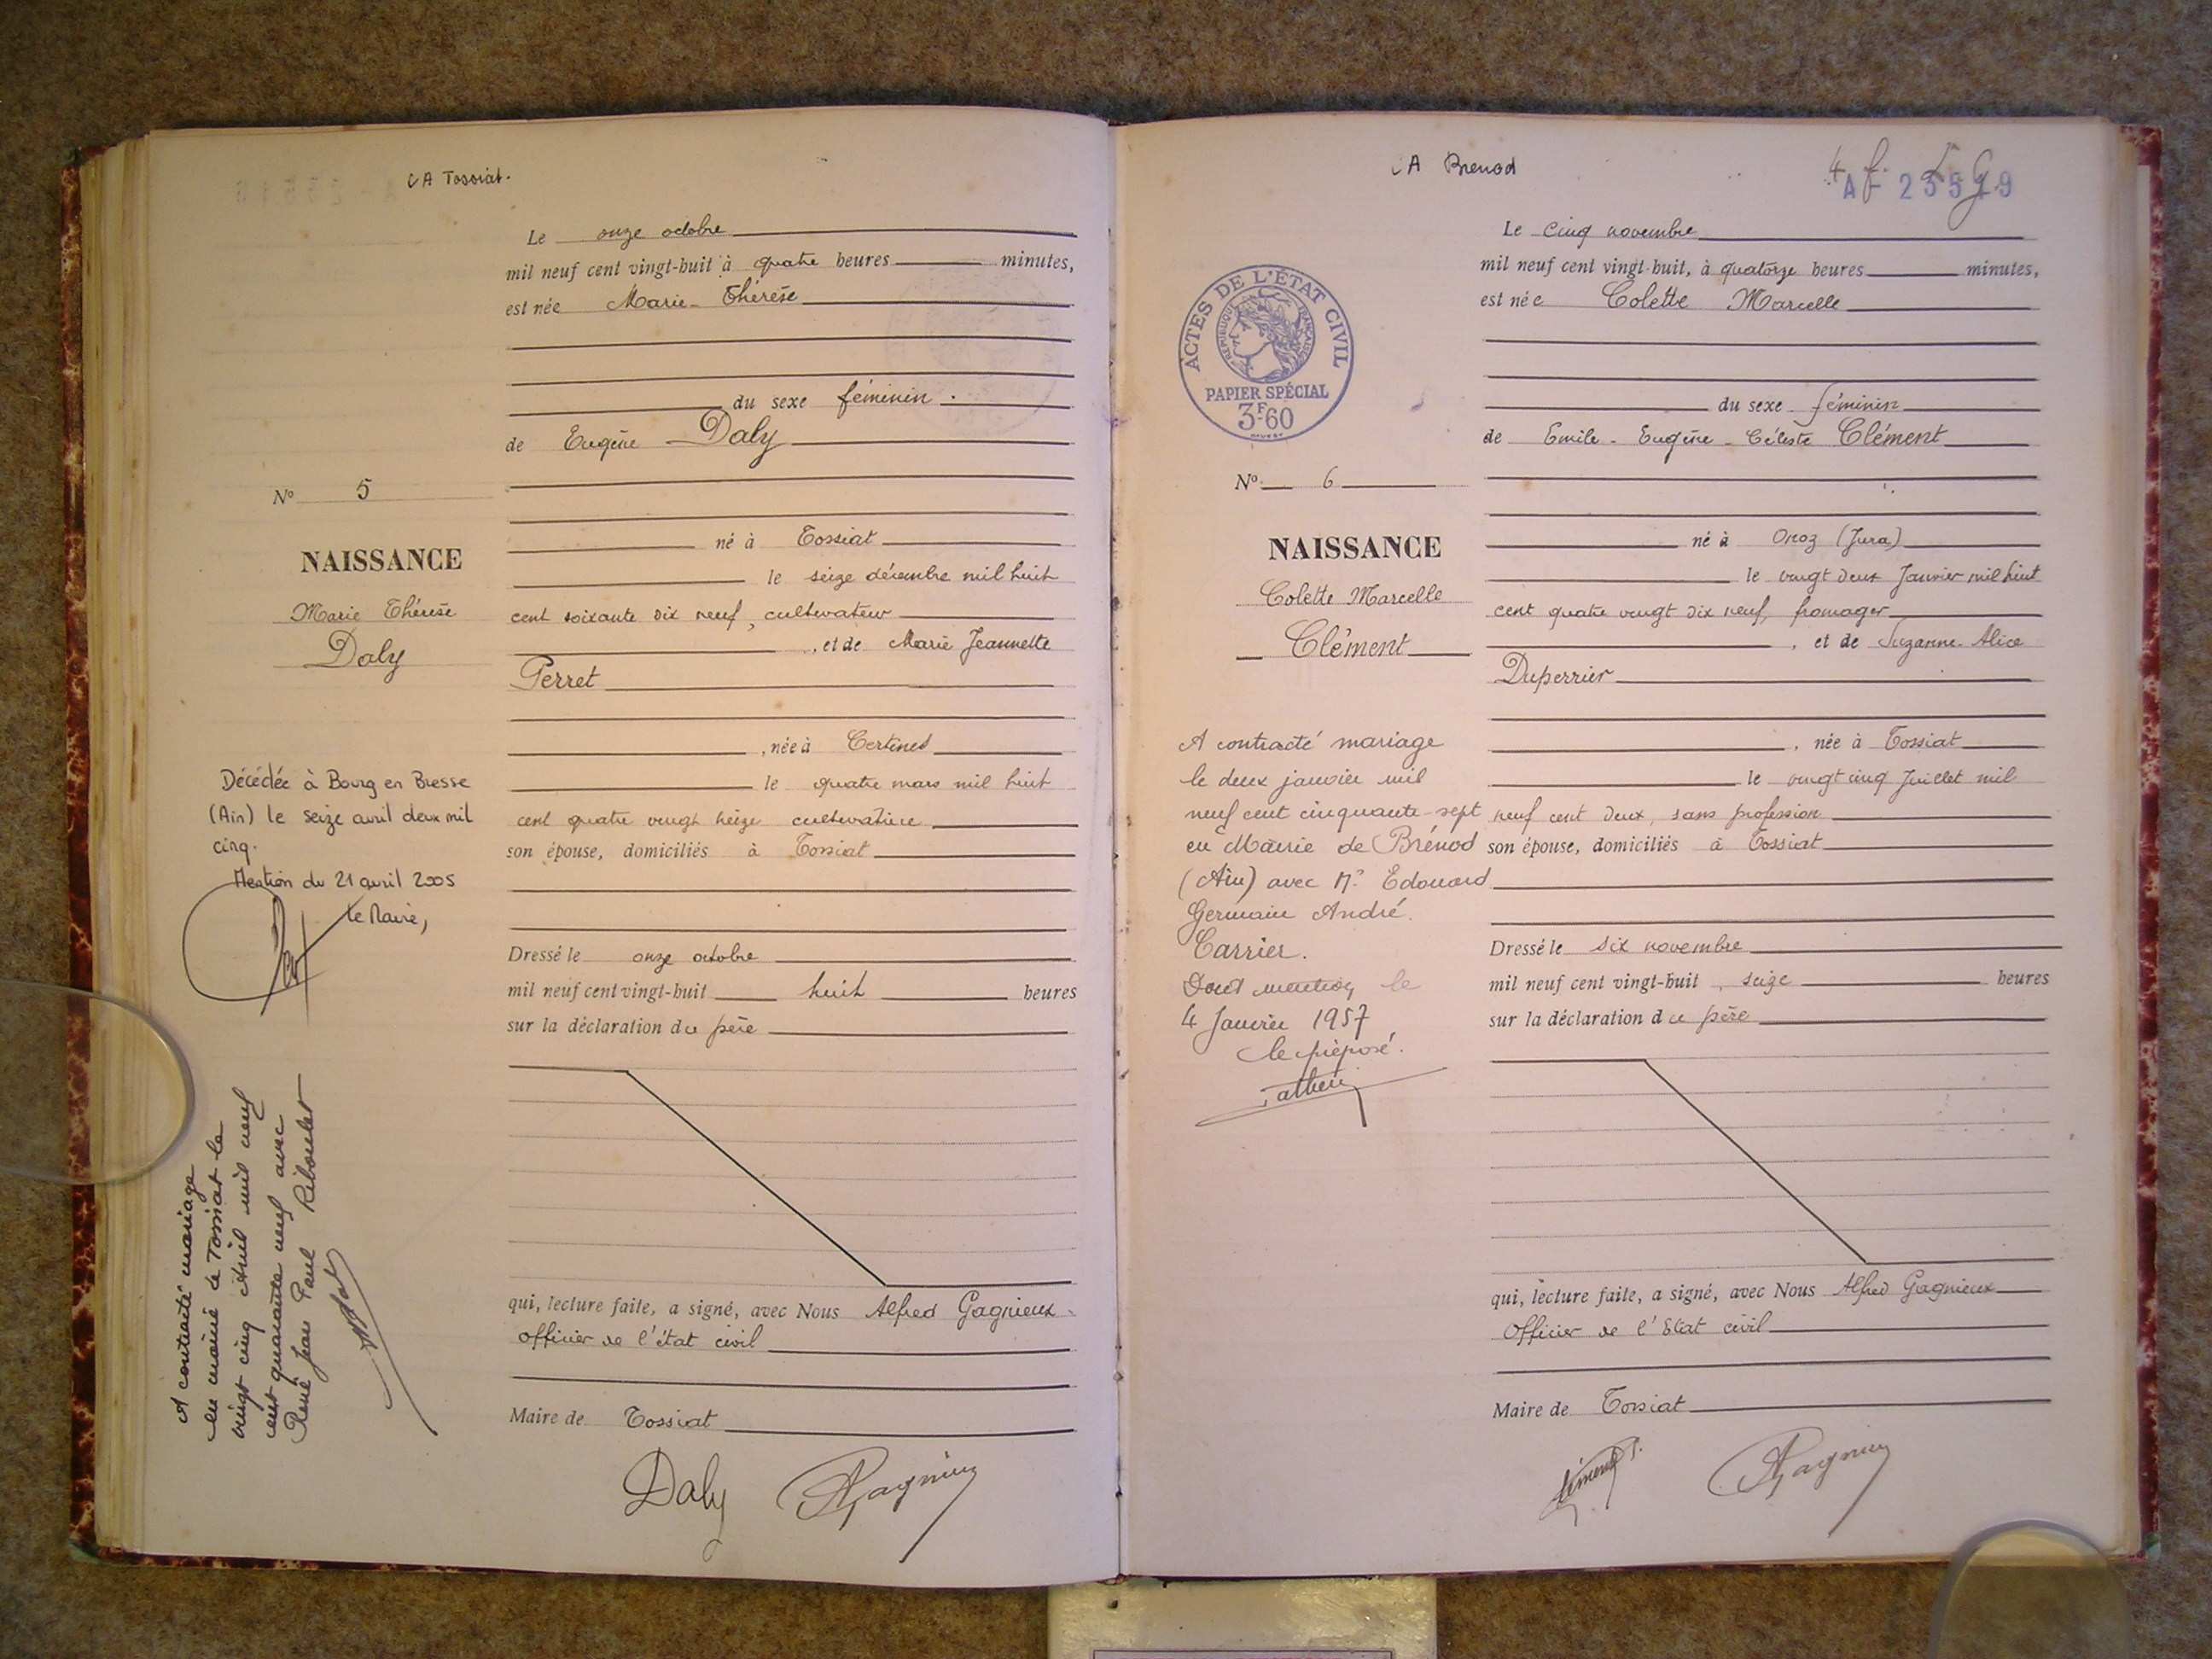 A Tossiat.
Le onze octobre
mil neuf cent vingt-huit à quatre heures minutes,
est née Marie-Thérèse
du sexe féminin.
de Eugène Daly
No 5
né à Tossiat
NAISSANCE
le seize décembre mil huit
Marie Thérèse
cent soixante dix neuf, cultivateur
, et de Marie Jeannette
Daly
Perret
, née à Certines
Décédée à Bourg en Bresse
le quatre mars mil huit
(Ain) le seize avril deux mil
cent quatre vingt treize cultivatrice
cinq.
son épouse, domiciliés à Tossiat
Mention du 21 avril 2005
le Maire,
Dressé le onze octobre
mil neuf cent vingt-huit huit heures
sur la déclaration du père
A contracté mariage
en mairie de Tossiat le
vingt cinq Avril mil neuf
cent quarante neuf avec
René Jean Paul Riboulet
qui, lecture faite, a signé, avec Nous Alfred Gagnieux
officier de l'état civil
Maire de Tossiat
Daly
A Brenod
4 f.
AF 23519
Le cinq novembre
mil neuf cent vingt-huit, à quatorze heures minutes,
est née Colette Marcelle
ACTES DE L'ÉTAT CIVIL
RÉPUBLIQUE FRANÇAISE
PAPIER SPÉCIAL
3F60
du sexe féminin
de Emile-Eugène-Céleste Clément
No. 6
né à Onoz (Jura)
NAISSANCE
le vingt deux Janvier mil huit
Colette Marcelle
cent quatre vingt dix neuf, fromager
, et de Suzanne-Alice
Clément
Duperrier
A contracté mariage
, née à Tossiat
le deux janvier mil
le vingt cinq Juillet mil
neuf cent cinquante-sept
neuf cent deux, sans profession
en Mairie de Brénod
son épouse, domiciliés à Tossiat
(Ain) avec Mr Edouard
Germain André
Carrier.
Dressé le six novembre
Dont mention le
mil neuf cent vingt-huit, seize heures
4 Janvier 1957
sur la déclaration du père
le préposé.
qui, lecture faite, a signé, avec Nous Alfred Gagnieux
Officier de l'Etat civil
Maire de Tossiat